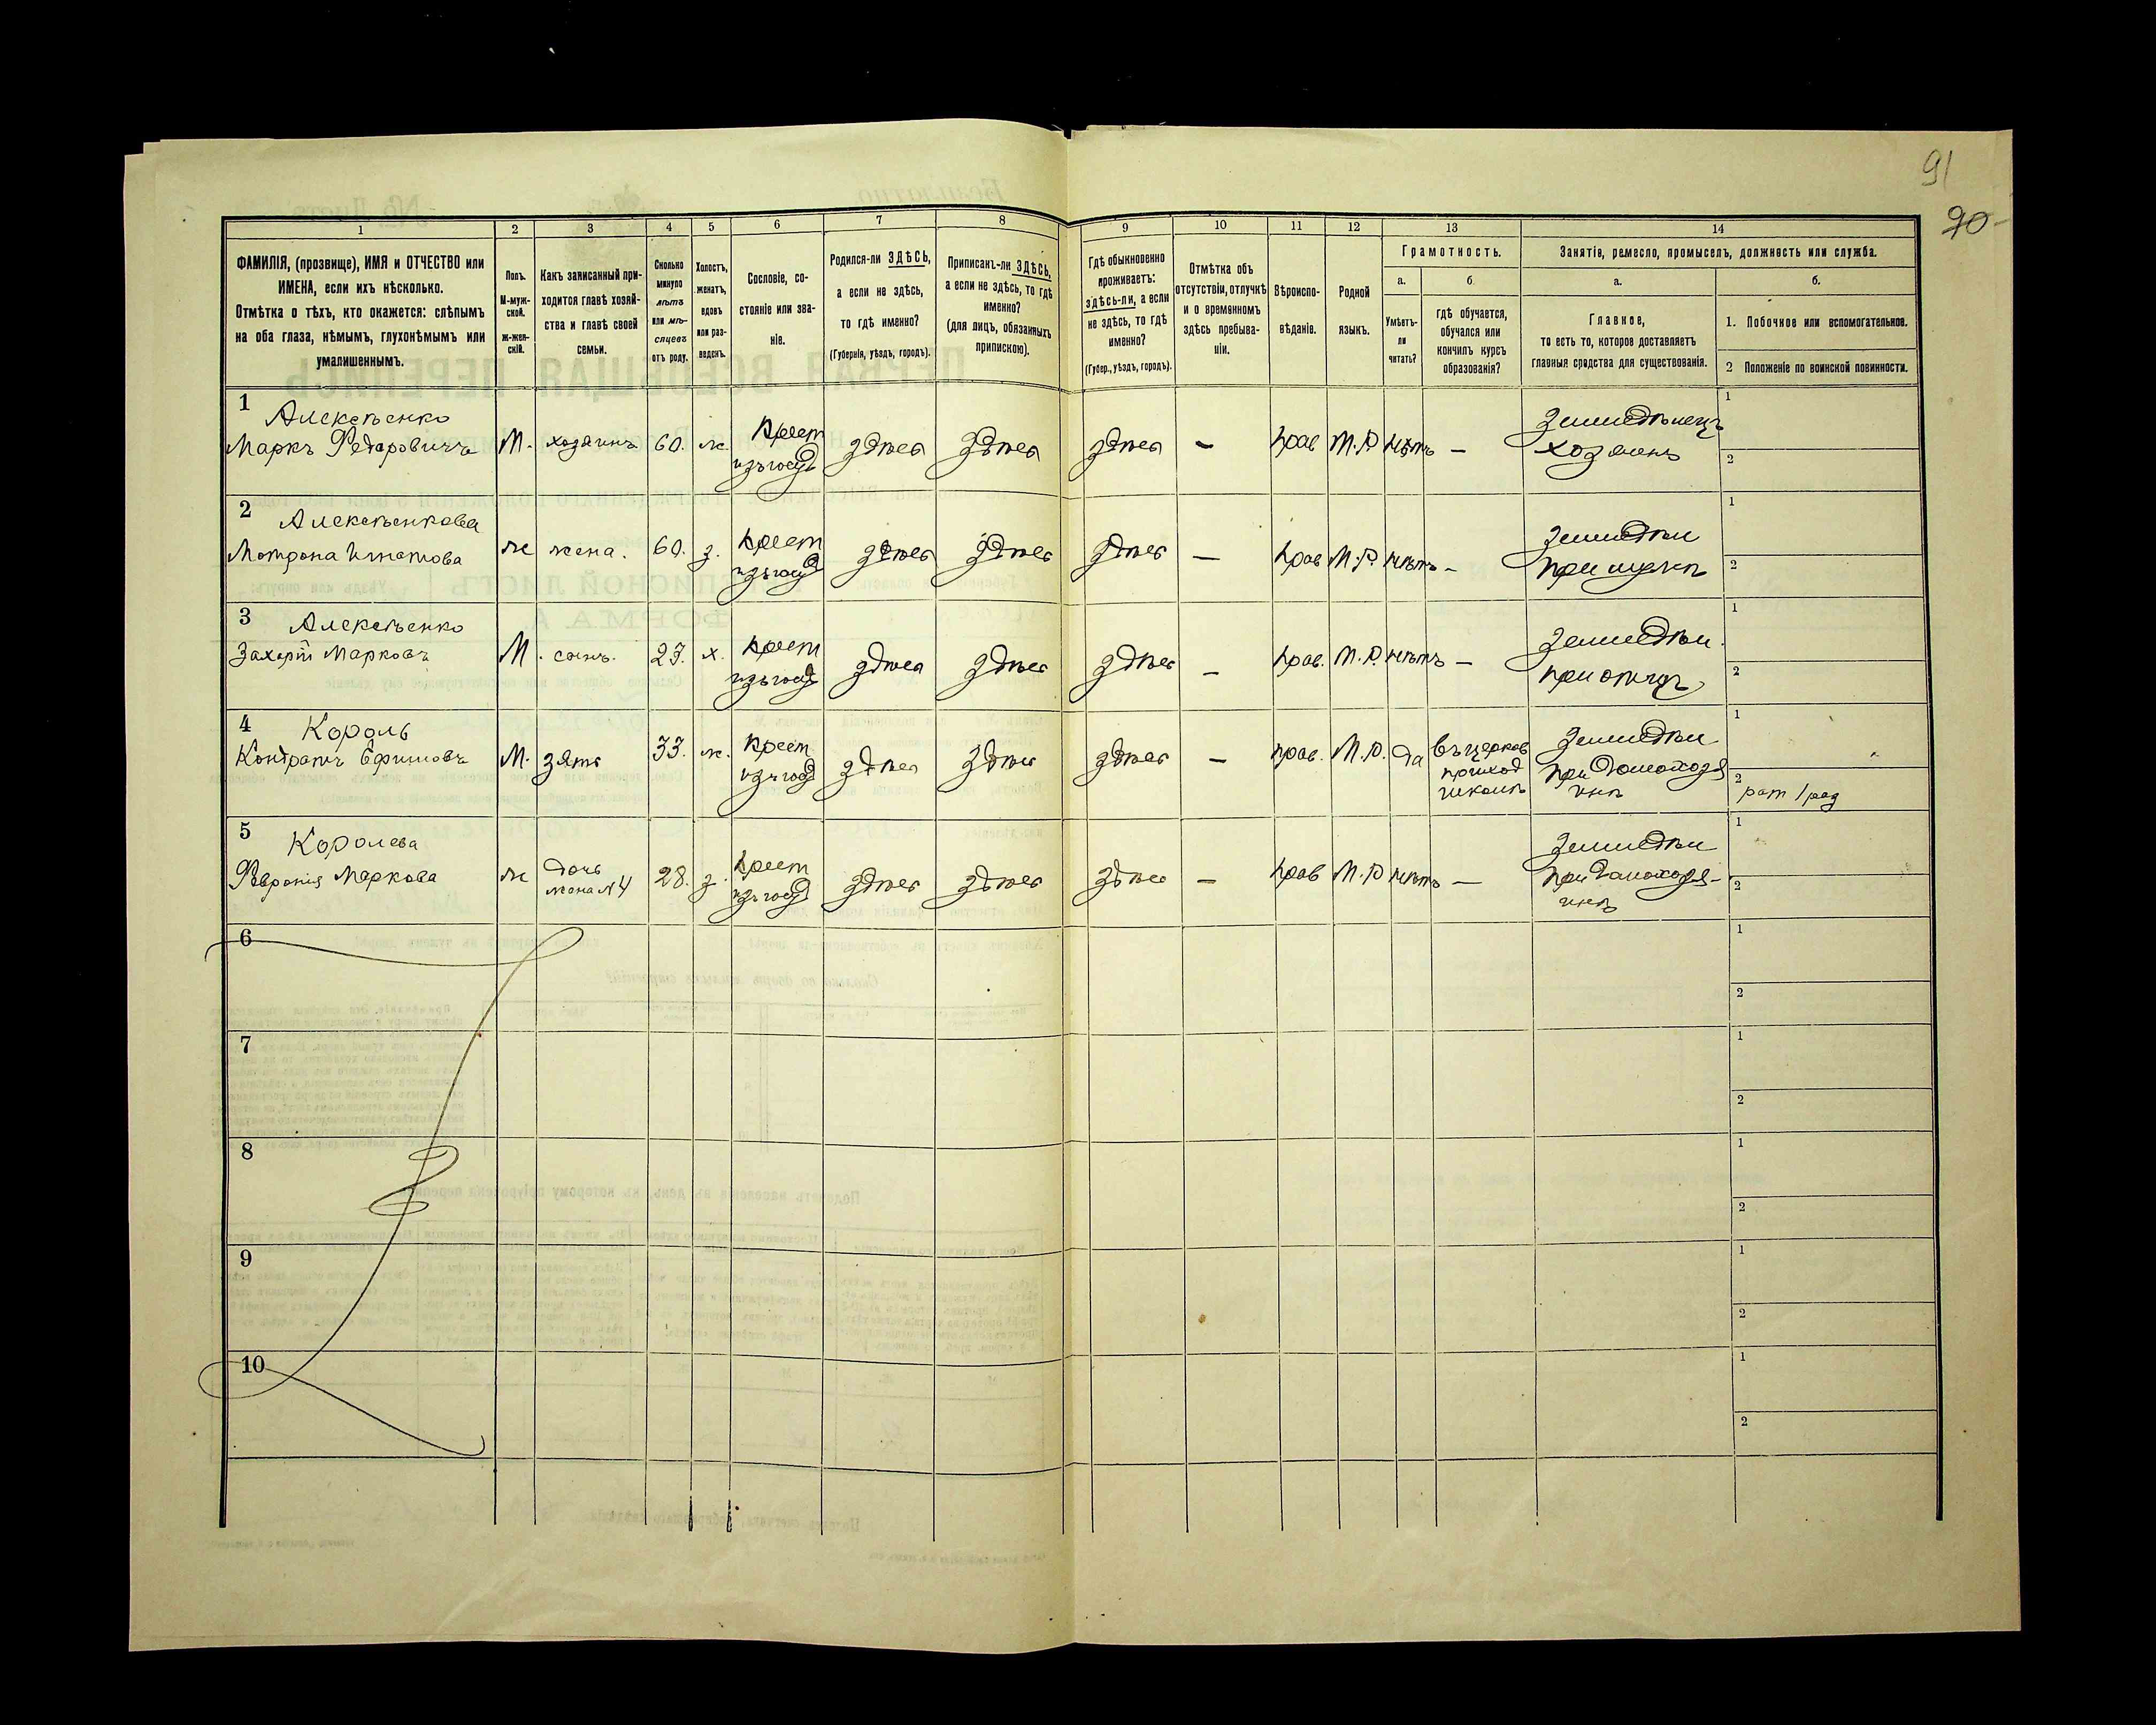 91
90
1 2 3 4 5 6 7 8 9 10 11 12 13 14
ФАМИЛІЯ, (прозвище), ИМЯ и ОТЧЕСТВО или
ИМЕНА, если ихъ нѣсколько.
Отмѣтка о тѣхъ, кто окажется: слѣпымъ
на оба глаза, нѣмымъ, глухонѣмымъ или
умалишеннымъ.
Полъ.
М-муж-
ской.
ж-жен-
скій.
Какъ записанный при-
ходится главѣ хозяй-
ства и главѣ своей
семьи.
Сколько
минуло
лѣтъ
или мѣ-
сяцевъ
отъ роду.
Холостъ,
женатъ,
вдовъ
или раз-
веденъ.
Сословіе, со-
стояніе или зва-
ніе.
Родился-ли ЗДѢСЬ,
а если не здѣсь,
то гдѣ именно?
(Губернія, уѣздъ, городъ).
Приписанъ-ли ЗДѢСЬ,
а если не здѣсь, то гдѣ
именно?
(для лицъ, обязанныхъ
припискою).
Гдѣ обыкновенно
проживаетъ:
здѣсь-ли, а если
не здѣсь, то гдѣ
именно?
(Губер., уѣздъ, городъ).
Отмѣтка объ
отсутствіи, отлучкѣ
и о временномъ
здѣсь пребыва-
ніи.
Вѣроиспо-
вѣданіе.
Родной
языкъ.
Грамотность.
а.
Умѣетъ-
ли
читать?
б.
гдѣ обучается,
обучался или
кончилъ курсъ
образованія?
Занятіе, ремесло, промыселъ, должность или служба.
а.
Главное,
то есть то, которое доставляетъ
главныя средства для существованія.
б.
1. Побочное или вспомогательное.
2 Положеніе по воинской повинности.
1 Алексѣенко
Маркъ Федоровичъ М. хозяинъ 60. ж. Крест изъ госуд здѣсь здѣсь здѣсь — прав М.Р. нѣтъ — Земледѣлецъ хозяинъ 1 2
2 Алексѣенкова
Мотрона Игнатова ж жена. 60. з. крест изъ госуд здѣсь здѣсь здѣсь — прав М.Р. нѣтъ — Земледѣл при мужѣ 1 2
3 Алексѣенко
Захарій Марковъ М. сынъ. 23. х. крест изъ госуд здѣсь здѣсь здѣсь — прав. М.Р. нѣтъ — Земледѣл. при отцѣ 1 2
4 Король
Кондратъ Ефимовъ М. зять 33. ж. крест изъ госуд здѣсь здѣсь здѣсь — прав. М.Р. да въ церков приход школѣ Земледѣл при домохозя инѣ 1 2 рат 1 раз
5 Королева
Февронія Маркова ж дочь жена N 4 28. з. крест изъ госуд здѣсь здѣсь здѣсь — прав М.Р. нѣтъ — Земледѣл при домохозя- инѣ 1 2
6 1 2
7 1 2
8 1 2
9 1 2
10 1 2